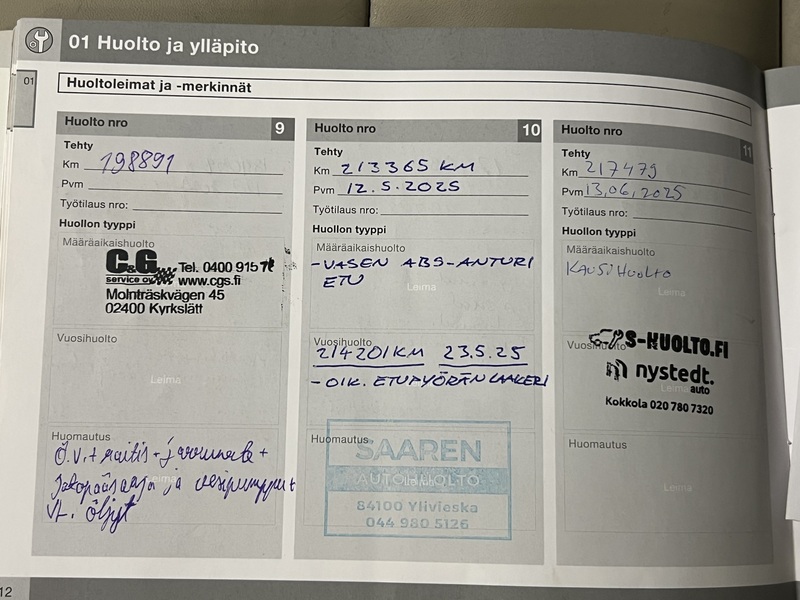 01 Huolto ja ylläpito
01
Huoltoleimat ja -merkinnät
Huolto nro 9
Tehty
Km 198891
Pvm
Työtilaus nro:
Huollon tyyppi
Määräaikaishuolto
C&G service oy Tel. 0400 915
www.cgs.fi
Molnträskvägen 45
02400 Kyrkslätt
Vuosihuolto
Leima
Huomautus
Ö.V. + raitis + jarruneste +
jakopääsarja ja vesipumppu +
öljyt
Huolto nro 10
Tehty
Km 213365 KM
Pvm 12.5.2025
Työtilaus nro:
Huollon tyyppi
Määräaikaishuolto
-VASEN ABS-ANTURI
ETU
Leima
Vuosihuolto
214201KM 23.5.25
- OIK. ETUPYÖRÄN LAAKERI
Huomautus
SAAREN
AUTOHUOLTO
84100 Ylivieska
044 980 5126
Huolto nro 11
Tehty
Km 217479
Pvm 13,06,2025
Työtilaus nro:
Huollon tyyppi
Määräaikaishuolto
KAUSIHUOLTO
Leima
Vuosihuolto
S-HUOLTO.FI
nystedt.
Leima
auto
Kokkola 020 780 7320
Huomautus
Leima
12